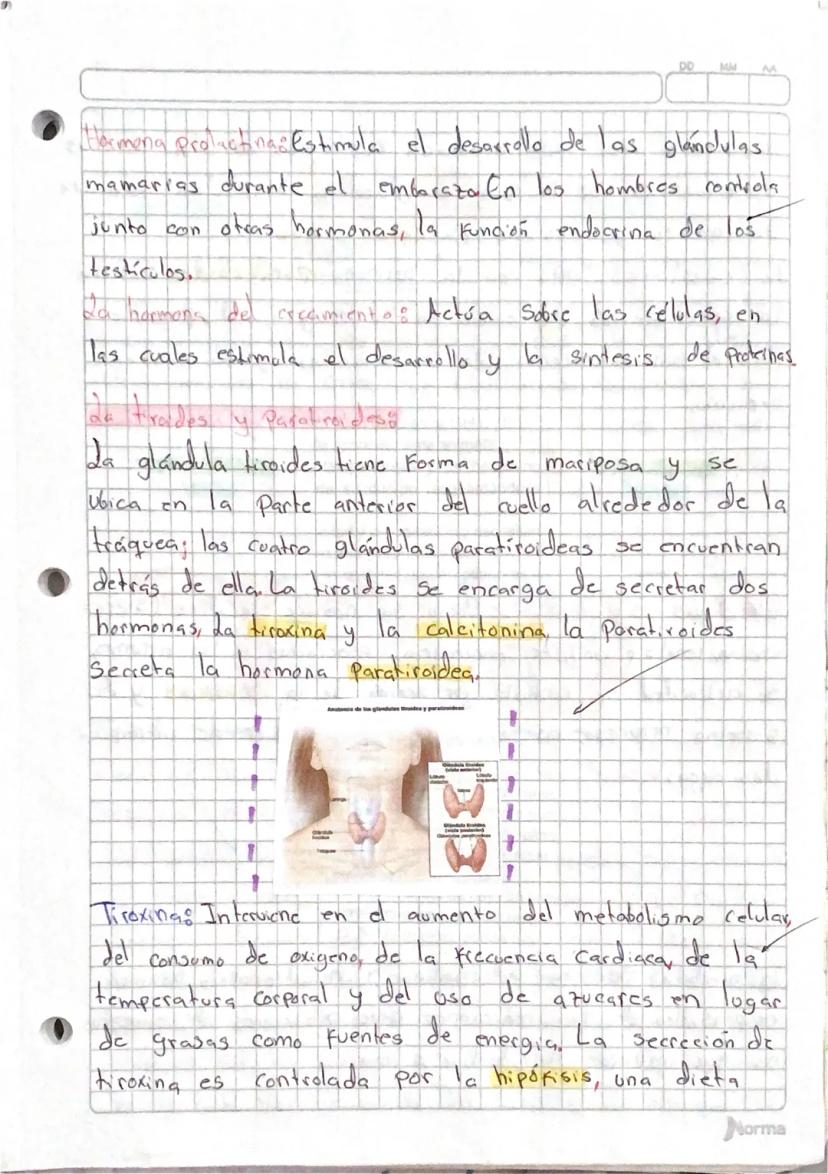 DD MM AA
Hormona prolactina: Estimula el desarrollo de las glándulas
mamarias durante el embarazo. En los hombres controla
junto con otras hormonas, la función endocrina de los
testículos.
La hormona del crecimiento: Actúa sobre las células, en
las cuales estimula el desarrollo y la sintesis de proteinas
La tiroides y Paratiroides:
La glándula tiroides tiene forma de mariposa y se
ubica en la parte anterior del cuello alrededor de la
tráquea; las cuatro glándulas paratiroideas se encuentran
detrás de ella. La tiroides se encarga de secretar dos
hormonas, La tiroxina y la calcitonina, la Paratiroides
secreta la hormona Paratiroidea.
Anatomía de las glándulas tiroides y paratiroideas
Glándula tiroides
(vista anterior)
Lóbulo
Lóbulo
Laringe
Glándula
tiroides
Glándula tiroides
(vista posterior)
Glándulas paratiroideas
Tiroxina: Interviene en el aumento del metabolismo celular,
del consumo de oxigeno, de la frecuencia cardiaca, de la
temperatura corporal y del uso de azucares en lugar
de grasas como fuentes de energia. La secreción de
tiroxina es controlada por la hipófisis, una dieta
Norma